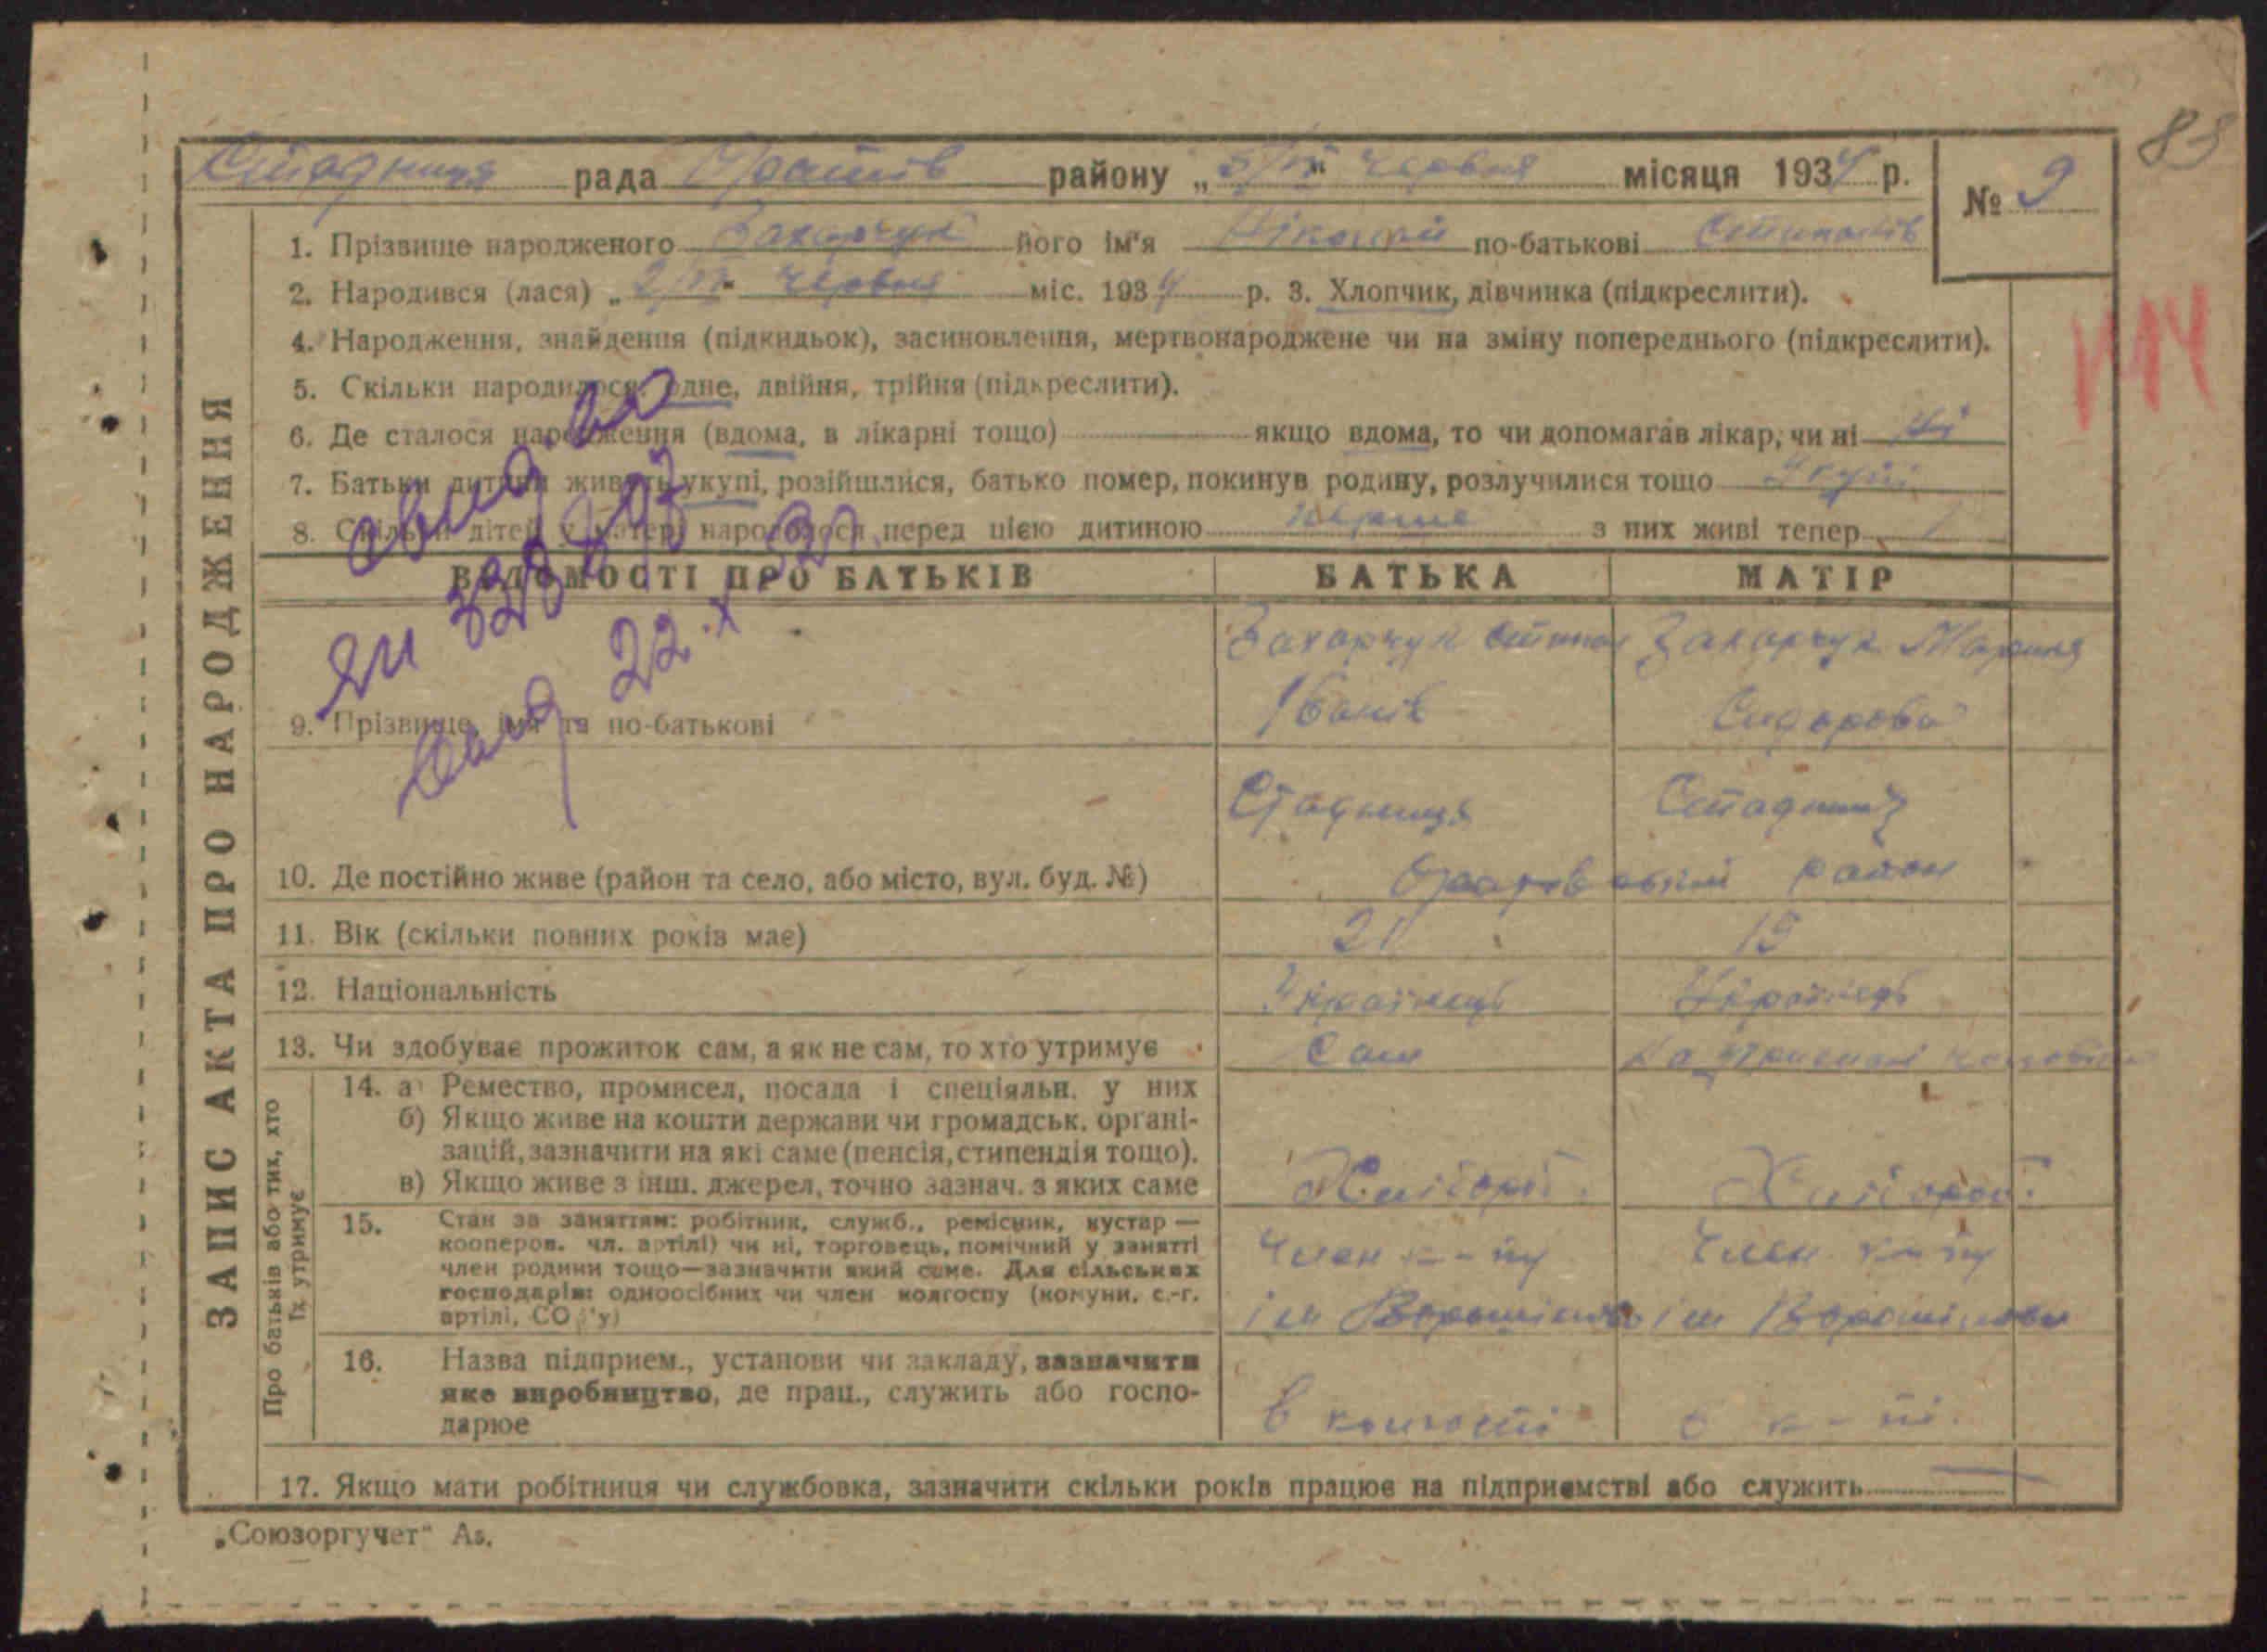 83
Стадниця рада району „5/VI" червня місяця 1934 р. № 9
ЗАПИС АКТА ПРО НАРОДЖЕННЯ
1. Прізвище народженого Захарчук його ім'я по-батькові
2. Народився (лася) „2/VI" червня міс. 1934 р. 3. Хлопчик, дівчинка (підкреслити).
4. Народження, знайдення (підкидьок), засиновлення, мертвонароджене чи на зміну попереднього (підкреслити).
5. Скільки народилося: одне, двійня, трійня (підкреслити).
6. Де сталося народження (вдома, в лікарні тощо) якщо вдома, то чи допомагав лікар, чи ні ні
7. Батьки дитини живуть укупі, розійшлися, батько помер, покинув родину, розлучилися тощо Укупі
8. Скільки дітей у матері народилося перед цією дитиною перше з них живі тепер 1
ВІДОМОСТІ ПРО БАТЬКІВ БАТЬКА МАТІР
9. Прізвище, ім'я та по-батькові
Захарчук Степан Іванів
Захарчук Марина Сидорова
10. Де постійно живе (район та село, або місто, вул. буд. №)
Стадниця
Стадниця
район
11. Вік (скільки повних років має) 21 19
12. Національність Українець Українець
13. Чи здобуває прожиток сам, а як не сам, то хто утримує Сам
Про батьків або тих, хто їх утримує
14. а) Ремество, промисел, посада і спеціяльн. у них
б) Якщо живе на кошти держави чи громадськ. органі-
зацій, зазначити на які саме (пенсія, стипендія тощо).
в) Якщо живе з інш. джерел, точно зазнач. з яких саме
Хлібороб.
Хлібороб.
15. Стан за заняттям: робітник, служб., ремісник, кустар —
кооперов. чл. артілі) чи ні, торговець, помічний у занятті
член родини тощо—зазначити який саме. Для сільських
господарів: одноосібних чи член колгоспу (комуни, с.-г.
артілі, СОЗ'у)
Член к-пу
ім Ворошилова
Член к-пу
ім Ворошилова
16. Назва підприєм., установи чи закладу, зазначити
яке виробництво, де прац., служить або госпо-
дарює
в колгоспі
в к-пі.
17. Якщо мати робітниця чи службовка, зазначити скільки років працює на підприємстві або служить
„Союзоргучет" Аз.